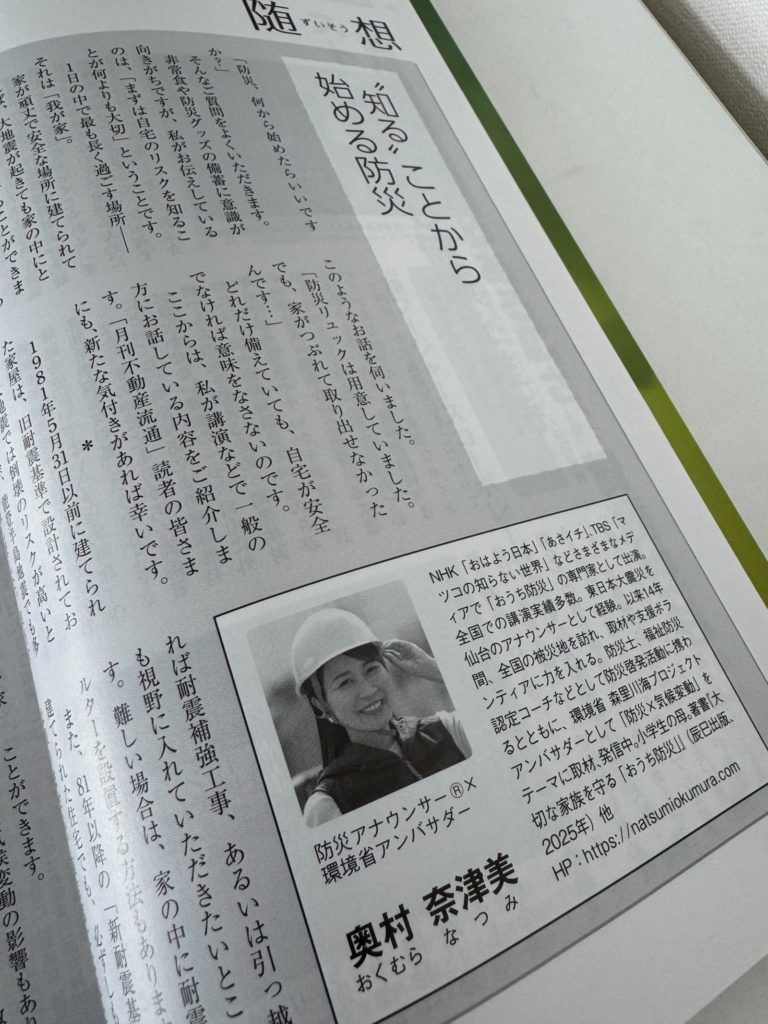 随想
ずいそう
〝知る〟ことから
始める防災
「防災、何から始めたらいいです
か?」
そんなご質問をよくいただきます。
非常食や防災グッズの備蓄に意識が
向きがちですが、私がお伝えしている
のは、「まずは自宅のリスクを知るこ
とが何よりも大切」ということです。
1日の中で最も長く過ごす場所――
それは「我が家」。
家が頑丈で安全な場所に建てられて
大地震が起きても家の中にと
ことができま
このようなお話を伺いました。
「防災リュックは用意していました。
でも、家がつぶれて取り出せなかった
んです…」
どれだけ備えていても、自宅が安全
でなければ意味をなさないのです。
ここからは、私が講演などで一般の
方にお話している内容をご紹介しま
す。「月刊不動産流通」読者の皆さま
にも、新たな気付きがあれば幸いです。
*
1981年5月31日以前に建てられ
た家屋は、旧耐震基準で設計されてお
地震では倒壊のリスクが高いと
能登半島地震でも多
れば耐震補強工事、あるいは引っ越
も視野に入れていただきたいとこ
す。難しい場合は、家の中に耐震
ルターを設置する方法もあります
また、81年以降の「新耐震基
建てられた住宅でも、必ずしも
ことができます。
候変動の影響もあり
防災アナウンサー®×
環境省アンバサダー
奥村 奈津美
おくむら なつみ
NHK「おはよう日本」「あさイチ」、TBS「マ
ツコの知らない世界」などさまざまなメデ
ィアで「おうち防災」の専門家として出演。
全国での講演実績多数。東日本大震災を
仙台のアナウンサーとして経験。以来14年
間、全国の被災地を訪れ、取材や支援ボラ
ンティアに力を入れる。防災士、福祉防災
認定コーチなどとして防災啓発活動に携わ
るとともに、環境省 森里川海プロジェクト
アンバサダーとして「防災×気候変動」を
テーマに取材、発信中。小学生の母。著書『大
切な家族を守る「おうち防災」』(辰巳出版、
2025年)他
HP:https://natsumiokumura.com